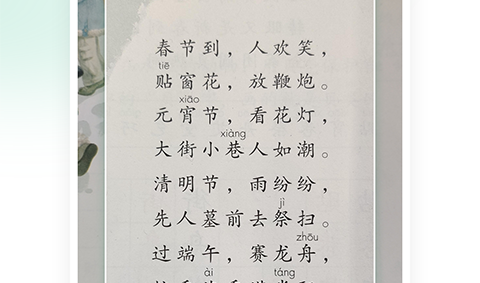 春节到，人欢笑，
tiē
贴窗花，放鞭炮。
xiāo
元宵节，看花灯，
xiàng
大街小巷人如潮。
清明节，雨纷纷，
jì
先人墓前去祭扫。
zhōu
过端午，赛龙舟，
ài táng